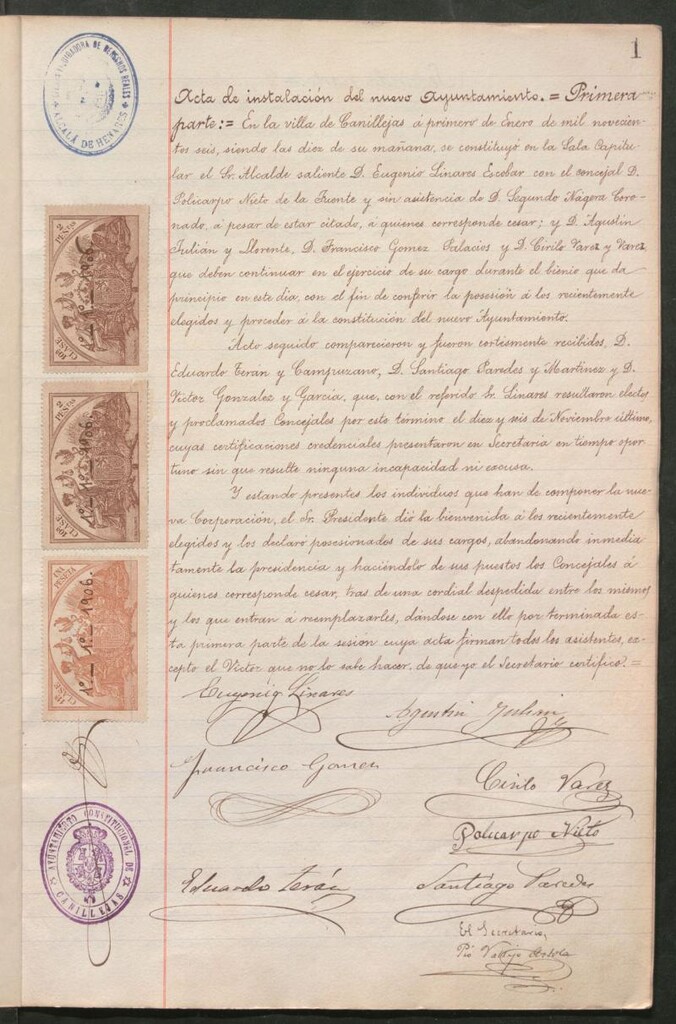 1
LIQUIDADORA DE DERECHOS REALES
ALCALÁ DE HENARES
Acta de instalación del nuevo Ayuntamiento. = Primera
parte: = En la villa de Canillejas á primero de Enero de mil novecien-
tos seis, siendo las diez de su mañana, se constituyó en la Sala Capitu-
lar el Sr. Alcalde saliente D. Eugenio Linares Escobar con el concejal D.
Policarpo Nieto de la Fuente y sin asistencia de D. Segundo Nágera Coro-
nado, á pesar de estar citado, á quienes corresponde cesar; y D. Agustín
Julián y Llorente, D. Francisco Gomez Palacios y D. Cirilo Varez y Varez
que deben continuar en el ejercicio de su cargo durante el bienio que da
principio en este dia, con el fin de conferir la posesión á los recientemente
elegidos y proceder á la constitución del nuevo Ayuntamiento.
Acto seguido comparecieron y fueron cortesmente recibidos, D.
Eduardo Terán y Campuzano, D. Santiago Paredes y Martinez y D.
Victor Gonzalez y Garcia, que, con el referido Sr. Linares resultaron electos
y proclamados Concejales por este término el diez y seis de Noviembre último,
cuyas certificaciones credenciales presentaron en Secretaria en tiempo opor-
tuno sin que resulte ninguna incapacidad ni excusa.
Y estando presentes los individuos que han de componer la nue-
va Corporación, el Sr. Presidente dió la bienvenida á los recientemente
elegidos y los declaró posesionados de sus cargos, abandonando inmedia
tamente la presidencia y haciéndolo de sus puestos los Concejales á
quienes corresponde cesar, tras de una cordial despedida entre los mismos
y los que entran á reemplazarles, dándose con ello por terminada es-
ta primera parte de la sesión cuya acta firman todos los asistentes, ex-
cepto el Victor que no lo sabe hacer, de que yo el Secretario certifico. =
Eugenio Linares
Agustin Julian
Francisco Gomez
Cirilo Varez
Policarpo Nieto
Eduardo Terán
Santiago Paredes
El Secretario
Pio
2 PESETAS
10ª CLASE
1º - 1º - 1906.
2 PESETAS
10ª CLASE
1º - 1º - 1906.
UNA PESETA
11ª CLASE
1º - 1º - 1906.
AYUNTAMIENTO CONSTITUCIONAL DE
CANILLEJAS